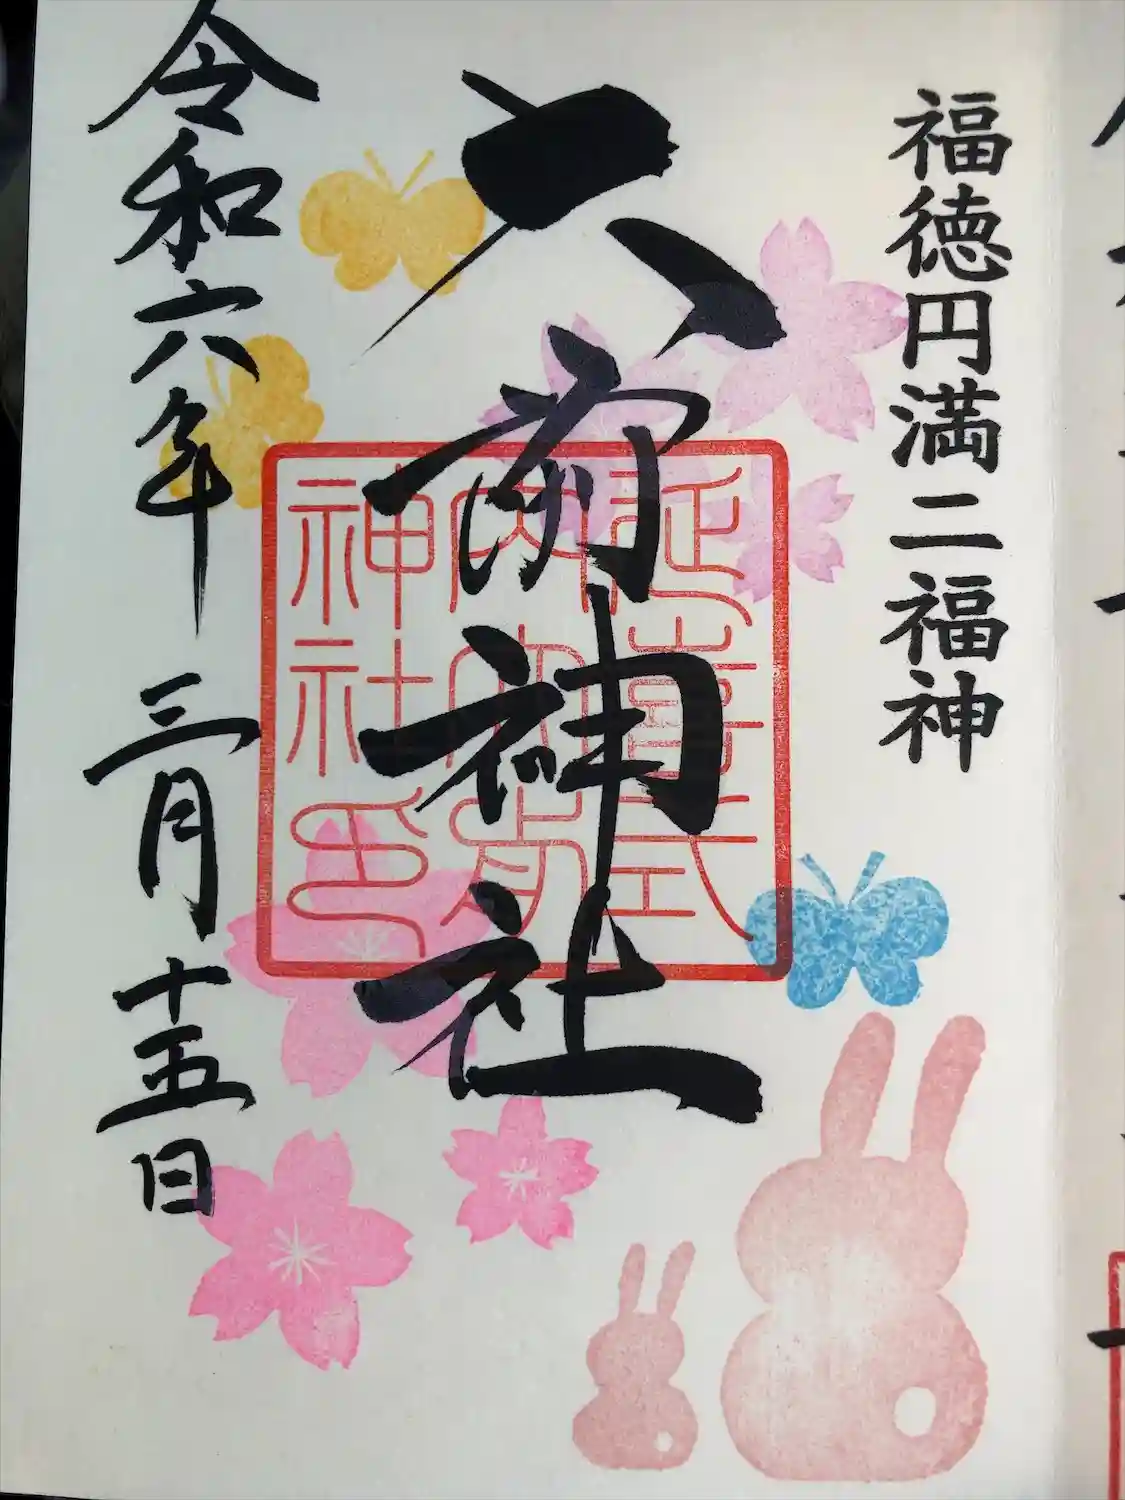 福徳円満二福神
大前神社
延喜式
内大前
神社印
令和六年三月十五日